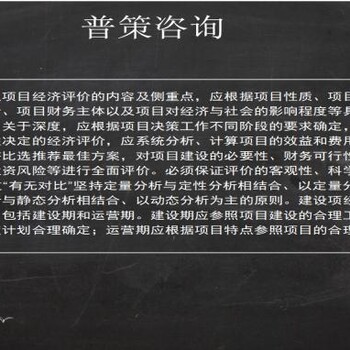 普策咨询
项目经济评价的内容及侧重点，应根据项目性质、项目
、项目财务主体以及项目对经济与社会的影响程度等具
关于深度，应根据项目决策工作不同阶段的要求确定，
决定的经济评价，应系统分析、计算项目的效益和费用
比选推荐最佳方案，对项目建设的必要性、财务可行性
资风险等进行全面评价。必须保证评价的客观性、科学
“有无对比”坚持定量分析与定性分析相结合、以定量分
与静态分析相结合、以动态分析为主的原则。建设项经
包括建设期和运营期。建设期应参照项目建设的合理工
计划合理确定；运营期应根据项目特点参照项目的合理